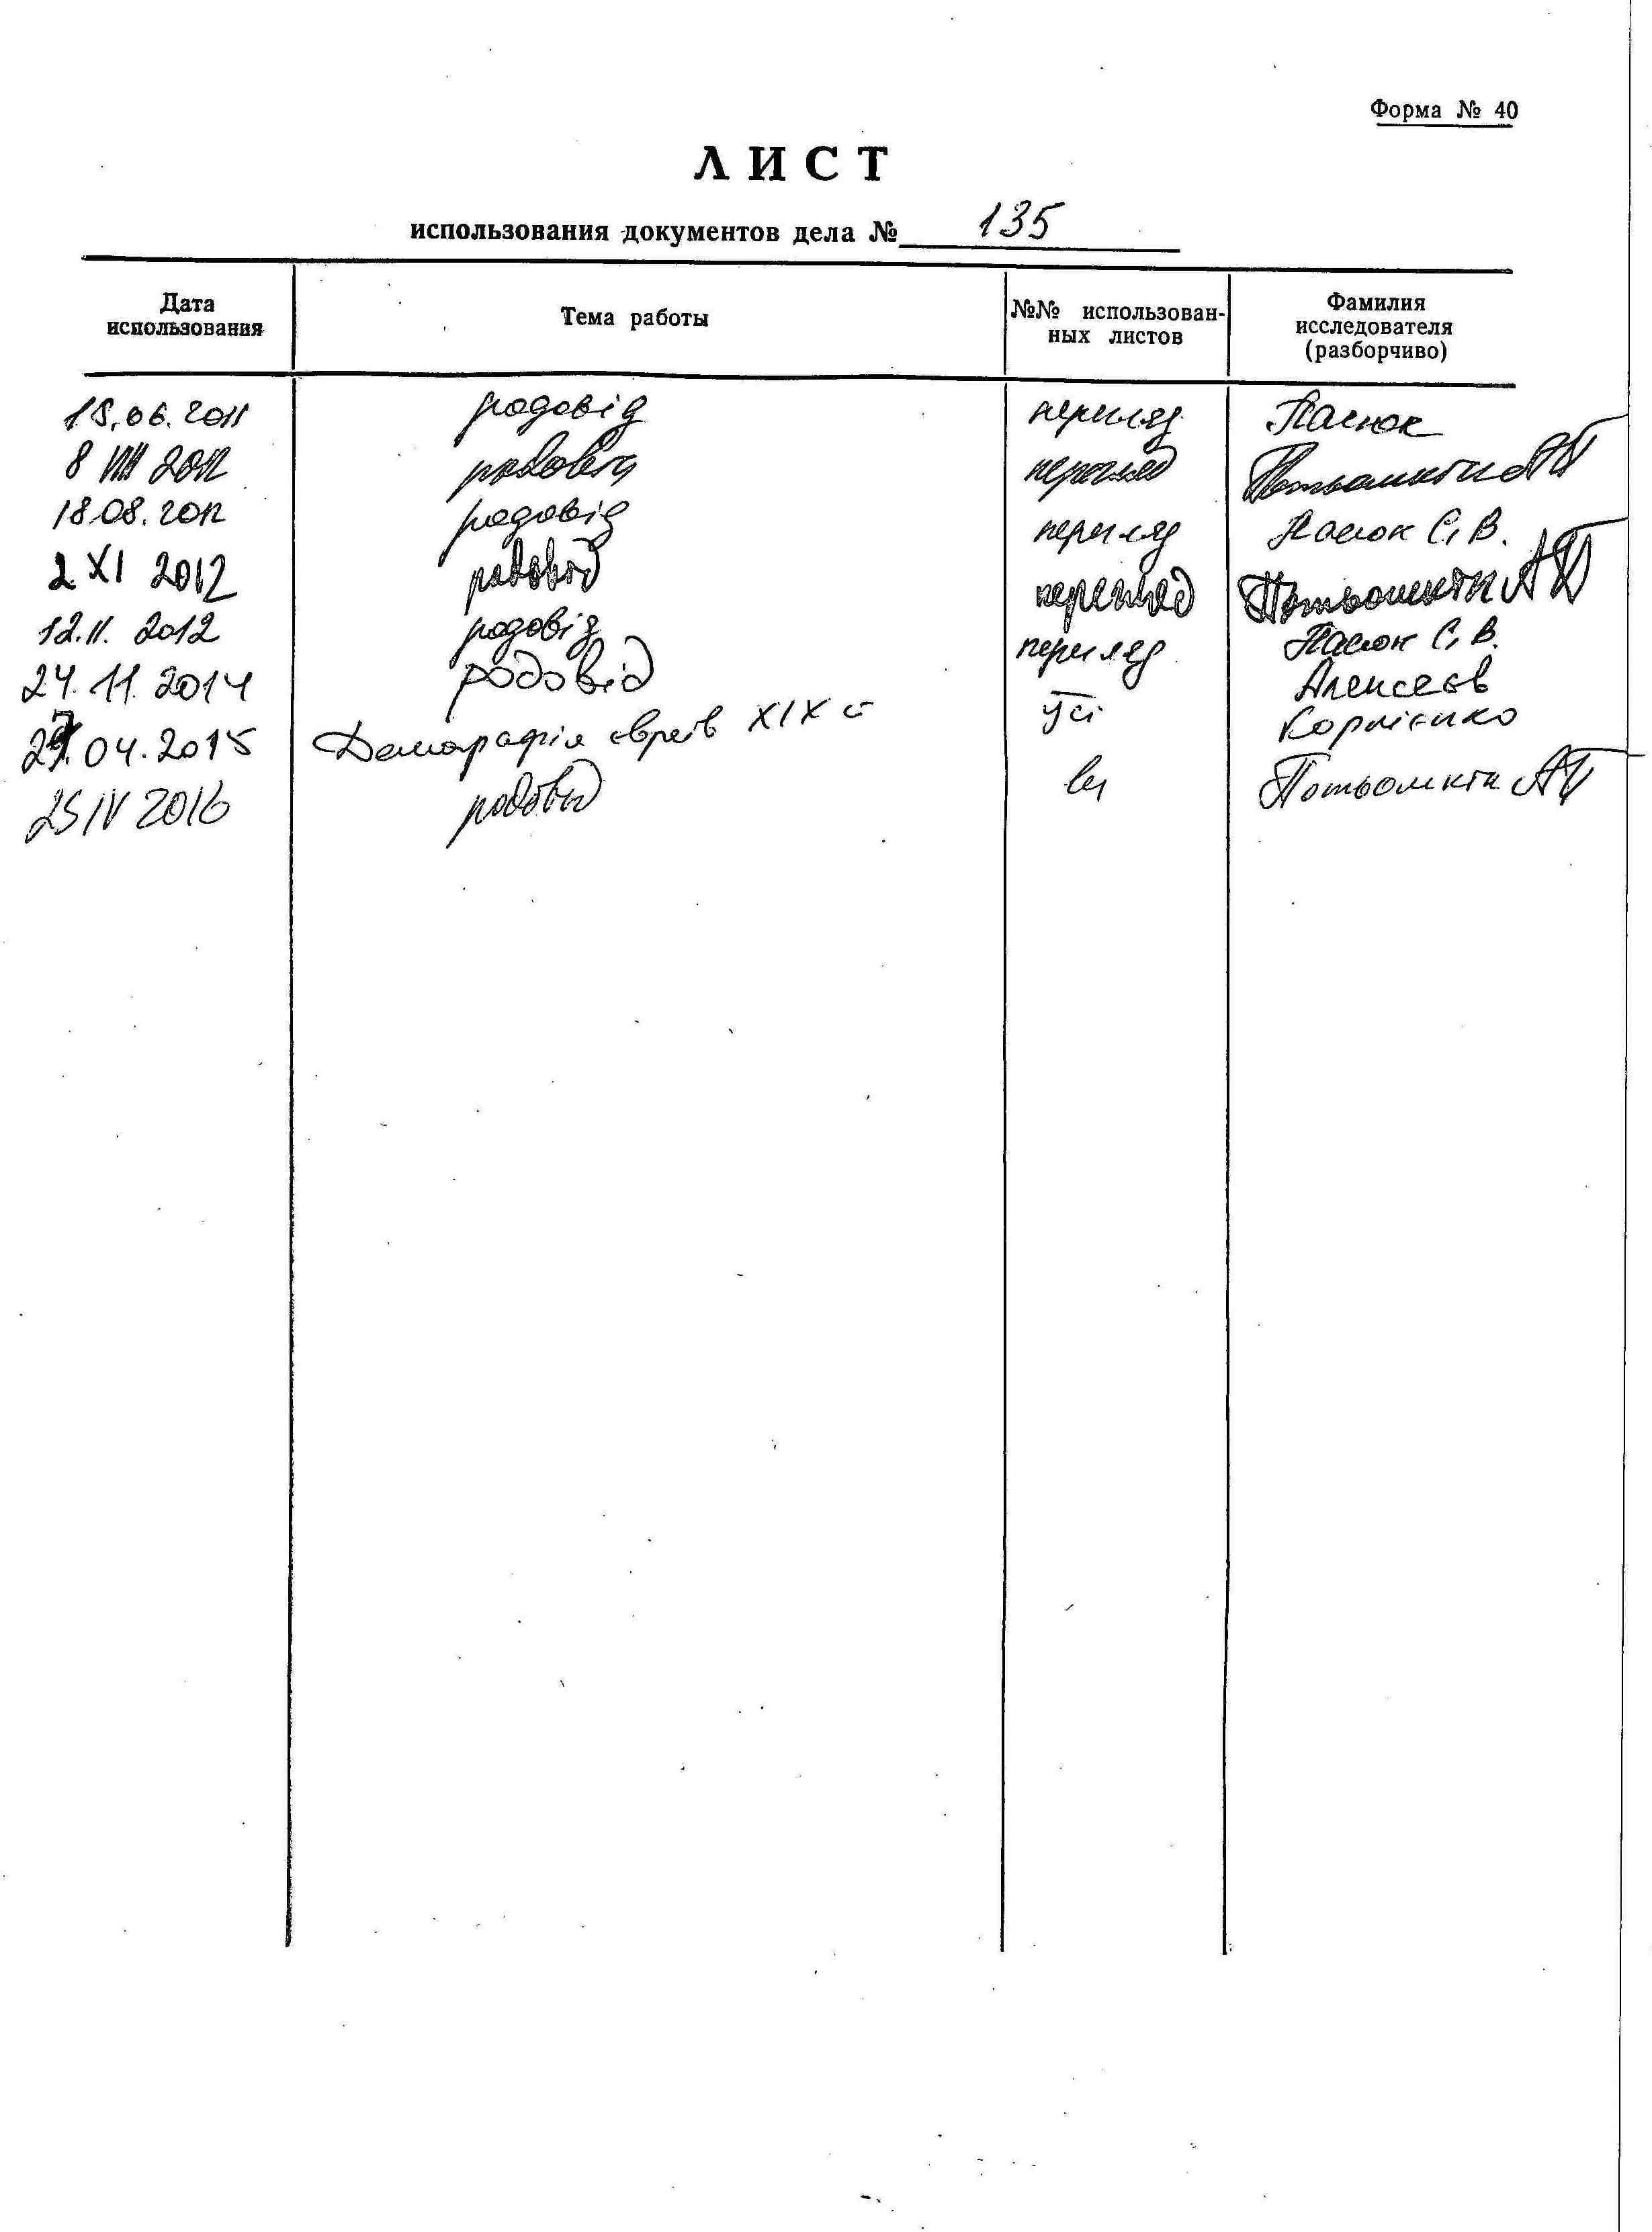 Форма № 40
ЛИСТ
использования документов дела № 135
Дата использования Тема работы №№ использован-ных листов Фамилия исследователя (разборчиво)
06. 2011 родовід перегляд Пасюк
8 VIII 2012 родовід перегляд Потьомкін
18.08. 2012 родовід перегляд Пасюк С. В.
2 XI 2012 родовід перегляд Потьомкін
12.11. 2012 родовід перегляд Пасюк С. В.
24. 11. 2014 родовід Усі Алексєєв
04. 2015 Демографія євреїв XIX ст Корнієнко
25 IV 2016 родовід всі Потьомкін